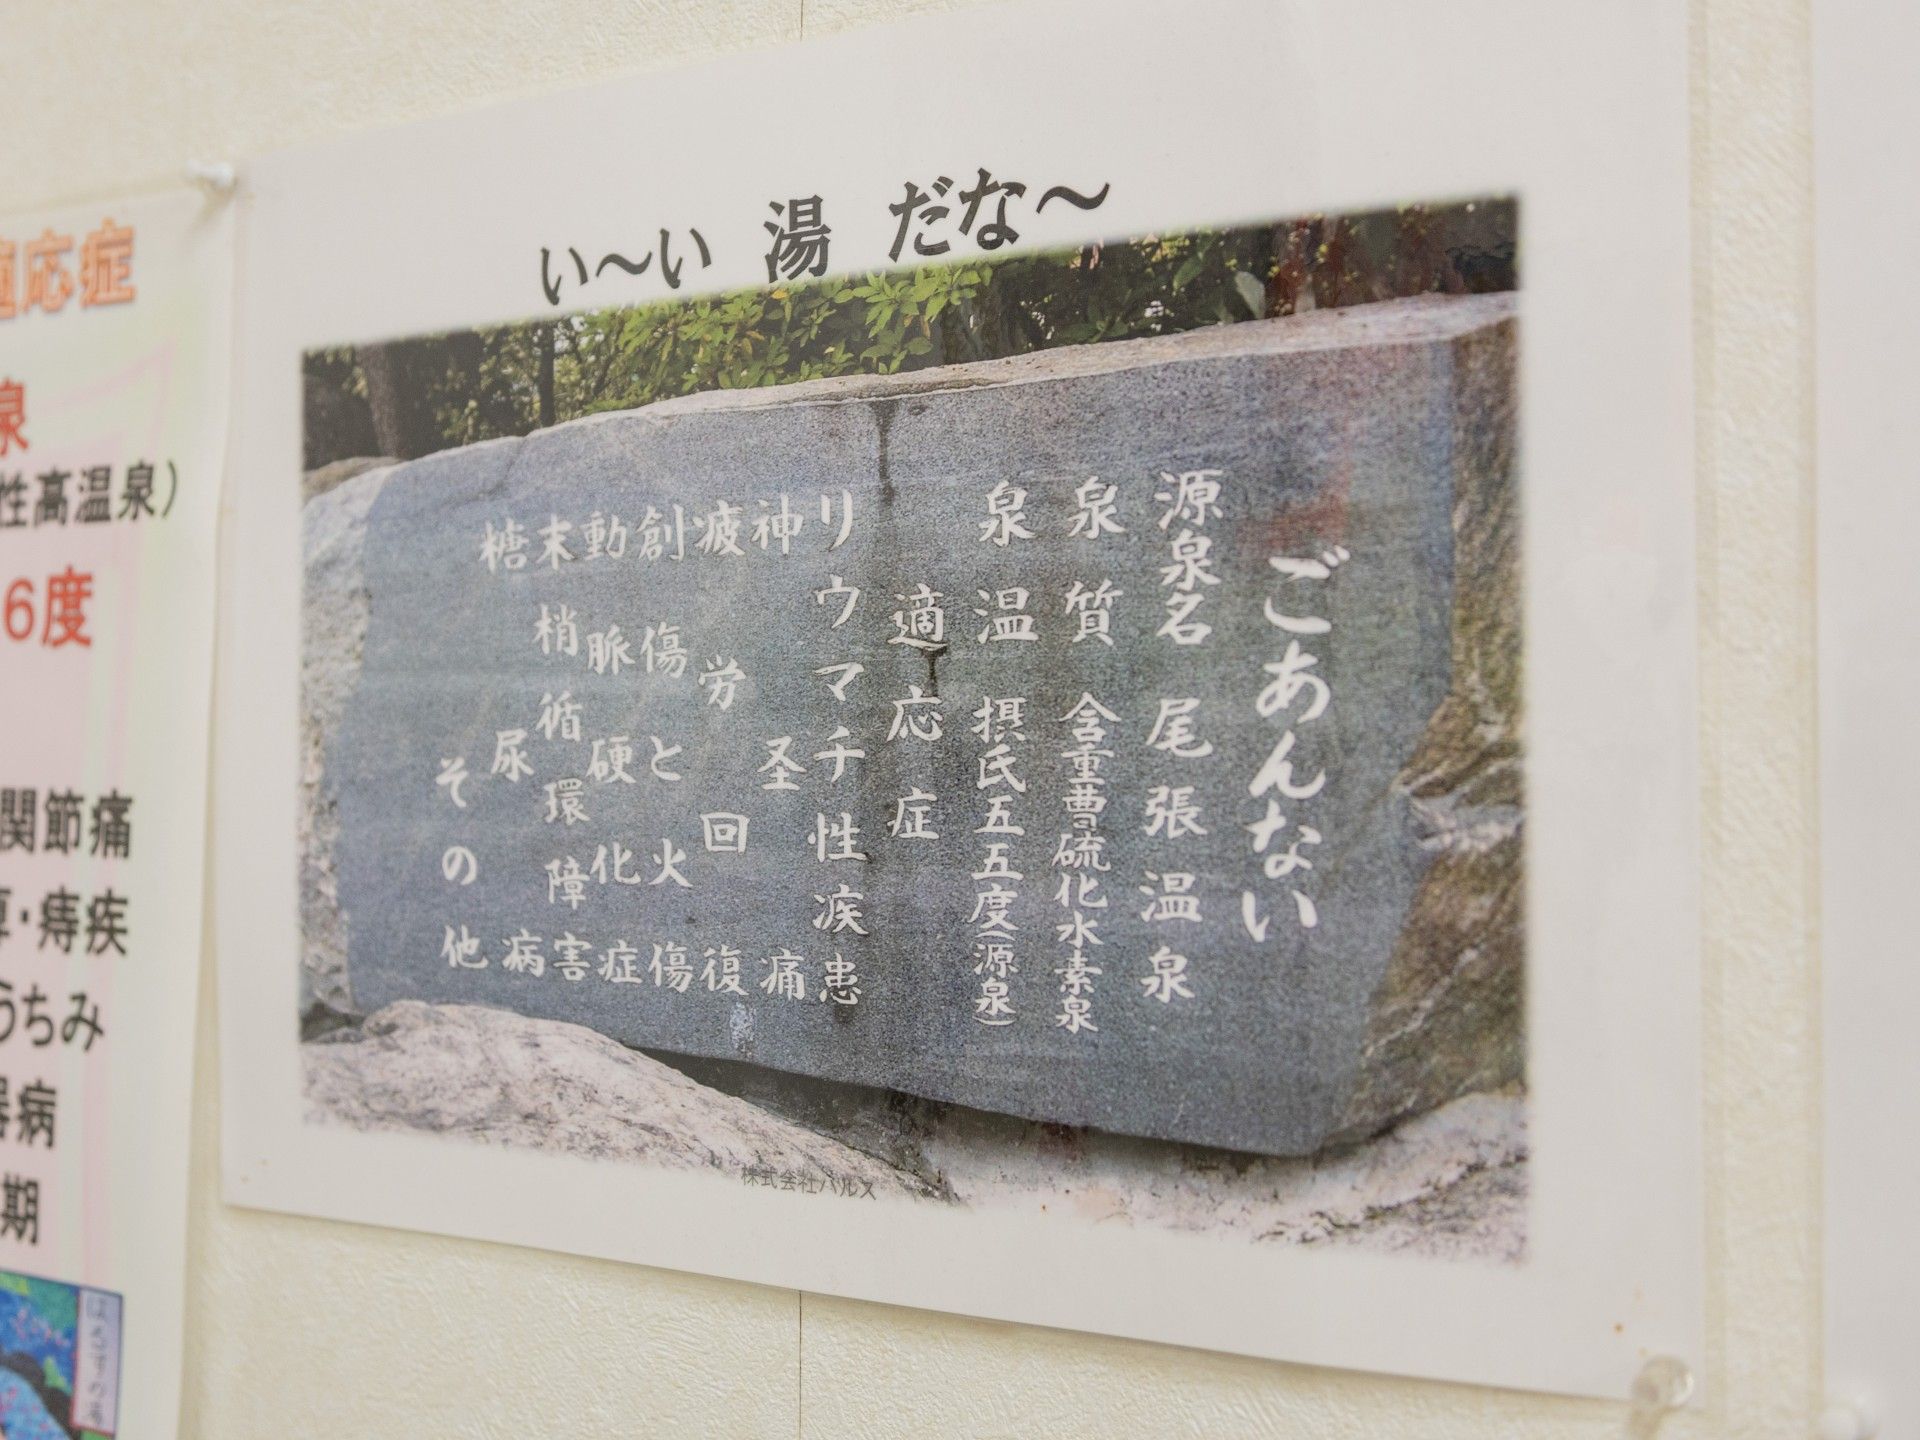 い〜い 湯 だな〜
ごあんない
源泉名 尾張温泉
泉質 含重曹硫化水素泉
泉温 摂氏五五度(源泉)
適応症
リウマチ性疾患
神圣痛
疲労回復
創傷と火傷
動脈硬化症
末梢循環障害
糖尿病
その他
株式会社パルス
適応症
泉
性高温泉)
6度
関節痛
・痔疾
うちみ
器病
期